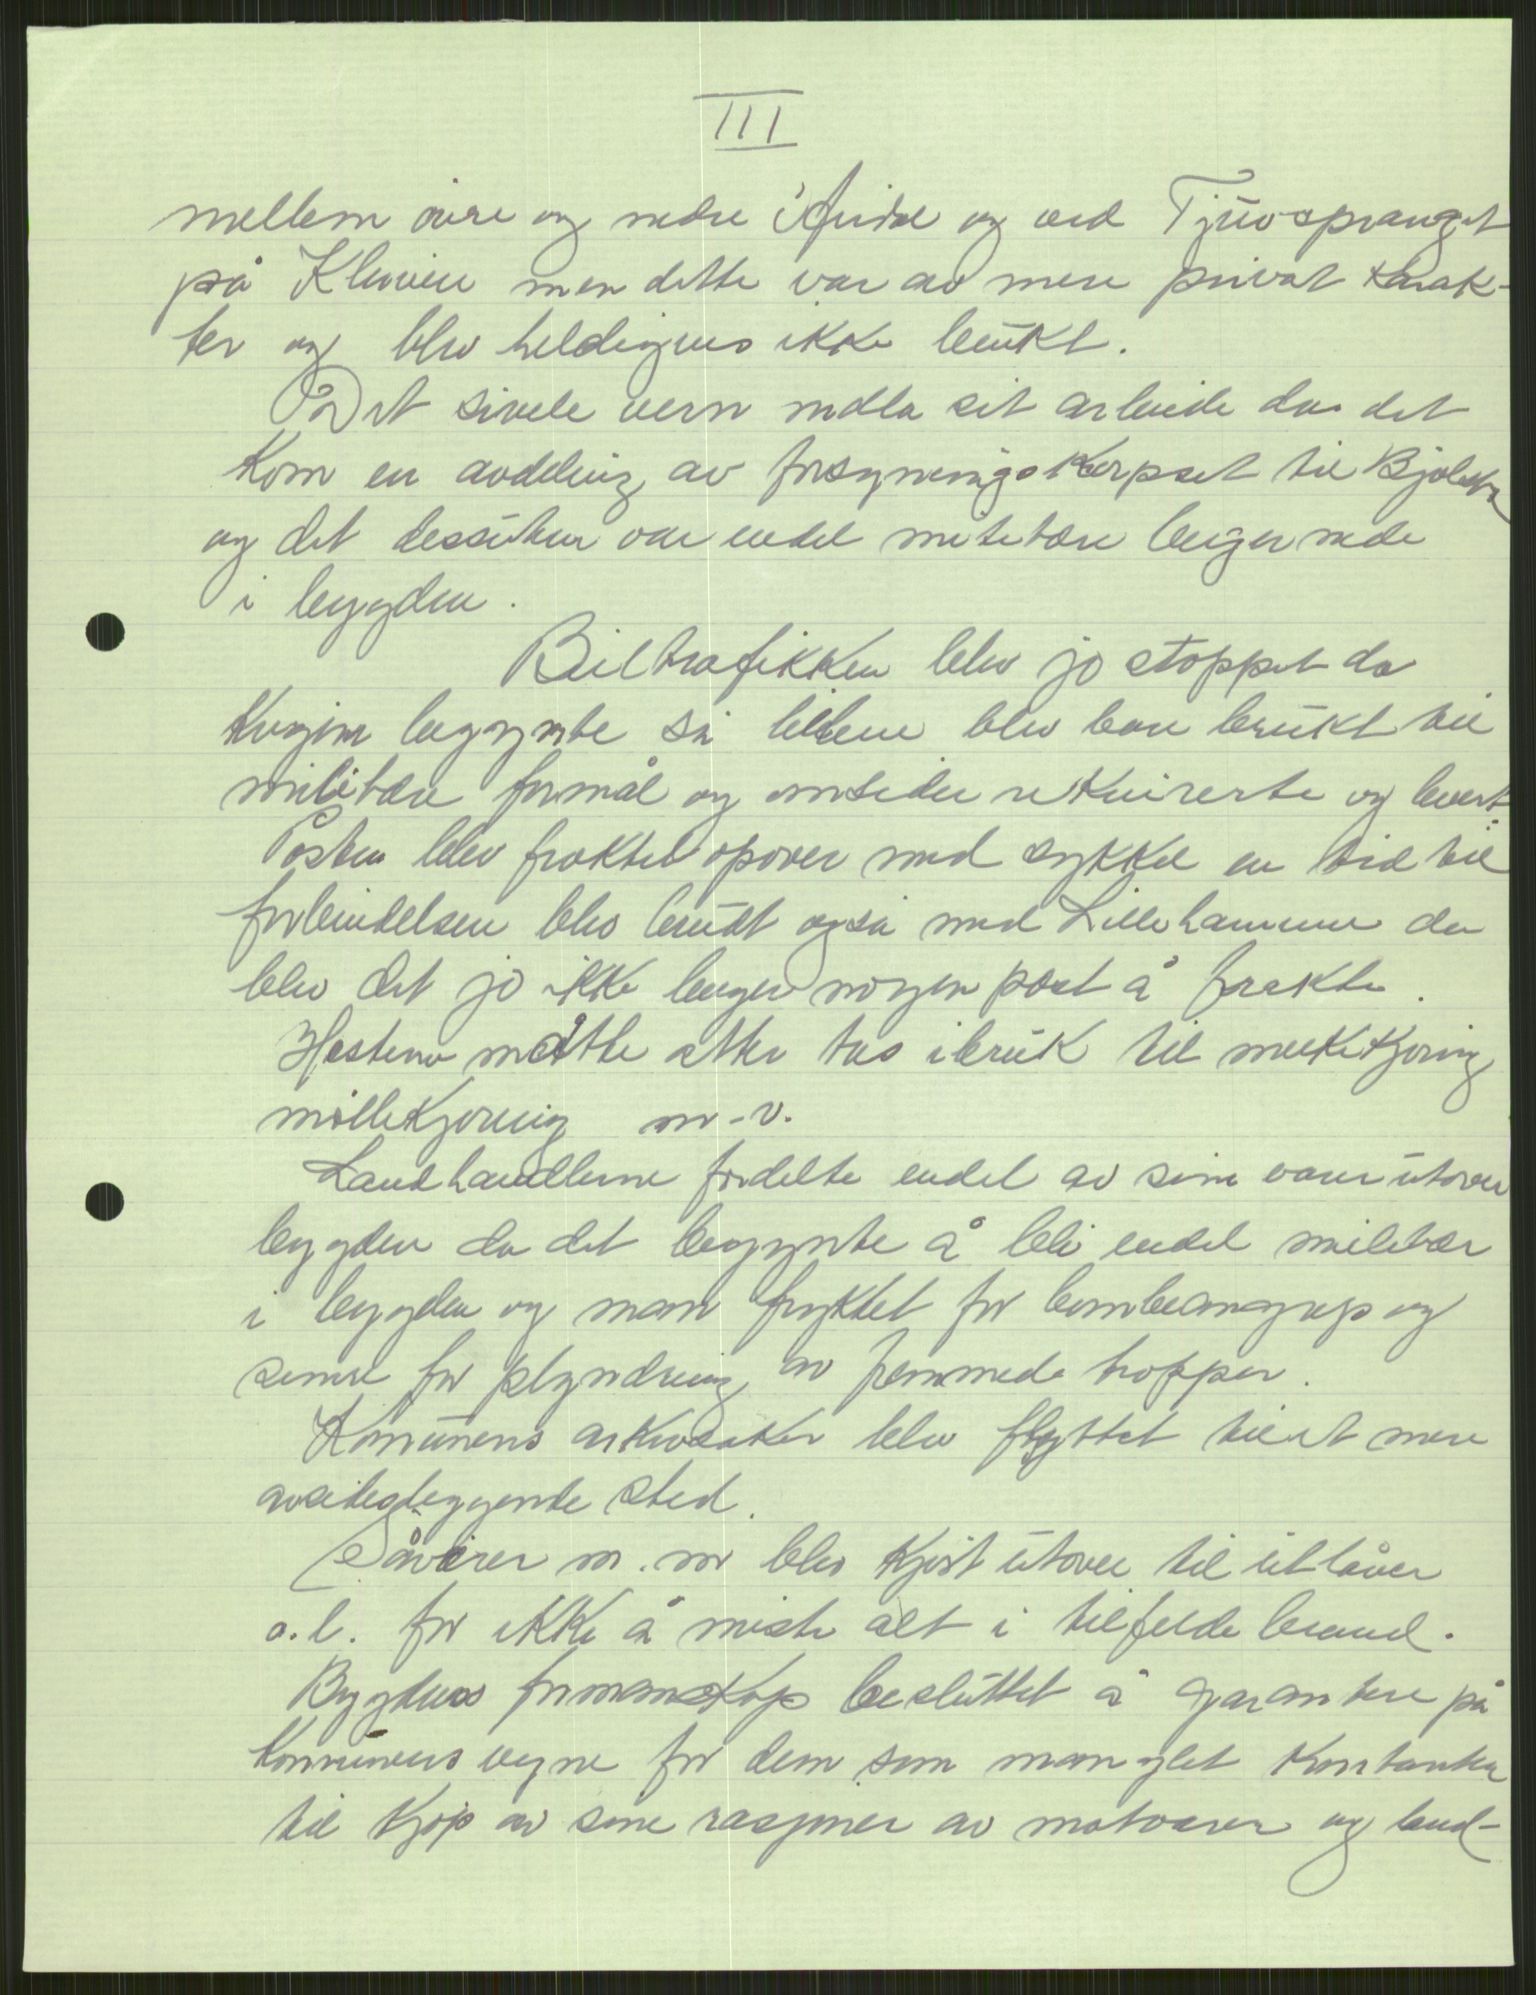 III
mellem øvre og nedre og ved Tjuvspranget
på Kleivin men dette var av mere privat karak-
ter og blev heldigvis ikke brukt.
Det sivele vern nedla sit arbeide da det
kom en avdeling av forsyningskorpset til
og det dessuten var endel militære længer nede
i bygden.
Biltrafikken blev jo stoppet da
krigen begynte så bilene blev bare brukt til
militære formål og omsider rekvirerte og levert.
Posten blev fraktet opover med sykkel en tid til
forbindelsen blev brudt også med Lillehammer da
blev det jo ikke lenger nogen post å frakte.
Hestene måtte atter tas i bruk til melkekjøring
møllekjøring m.v.
Landhandlerne fordelte endel av sine varer utover
bygden da det begynte å bli endel militær
i bygden og man fryktet for bombeangrep og
senere for plyndring av fremmede tropper.
Komunens arkivsaker blev flyttet til et mere
avsidesliggende sted.
Såvarer m.m blev kjørt utover til utlåver
o.l. for ikke å miste alt i tilfelde brand.
Bygdens formanskap besluttet å garantere på
komunens vegne for dem som manglet kontanter
til kjøp av sine rasjoner av matvarer og land-